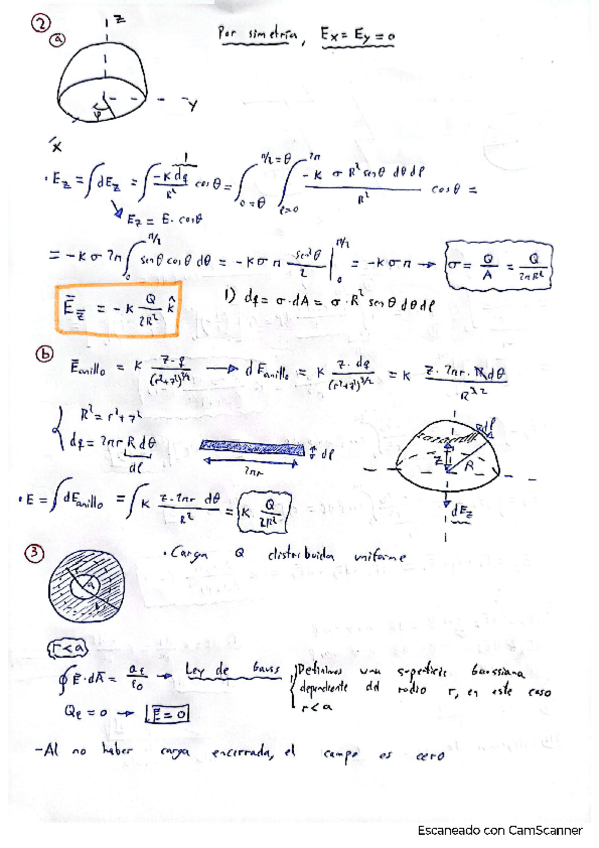 ② z Por simetría, Ex = Ey = 0
ⓐ
φ y
x
· Ez = ∫dEz = ∫ -K dq/R² cosθ = ∫_{0=θ}^{π/2=θ} ∫_{φ=0}^{2π} -K σ R² senθ dθ dφ / R² cosθ =
1
Ez = E · cosθ
= -Kσ 2π ∫_0^{π/2} senθ cosθ dθ = -Kσπ sen²θ/2 |_0^{π/2} = -Kσπ → σ = Q/A = Q/2πR²
E⃗z = -K Q/2R² k̂ 1) dq = σ·dA = σ·R² senθ dθ dφ
ⓑ Ēanillo = K z·q/(r²+z²)^{3/2} → dEanillo = K z·dq/(r²+z²)^{3/2} = K z·2πr·R dθ/R^{3 2}
{ R² = r² + z²
dq = 2πr R dθ
dl
2πr dl
dl
z R
dEz
· E = ∫dEanillo = ∫K z·2πr dθ/R² = K Q/2R²
③ · Carga Q distribuida uniforme
a
b
r<a
∮Ē·dĀ = Qε/ε0 → Ley de Gauss { Definimos una superficie Gaussiana
dependiente del radio r, en este caso
r<a
Qε = 0 → Ē = 0
- Al no haber carga encerrada, el campo es cero
Escaneado con CamScanner